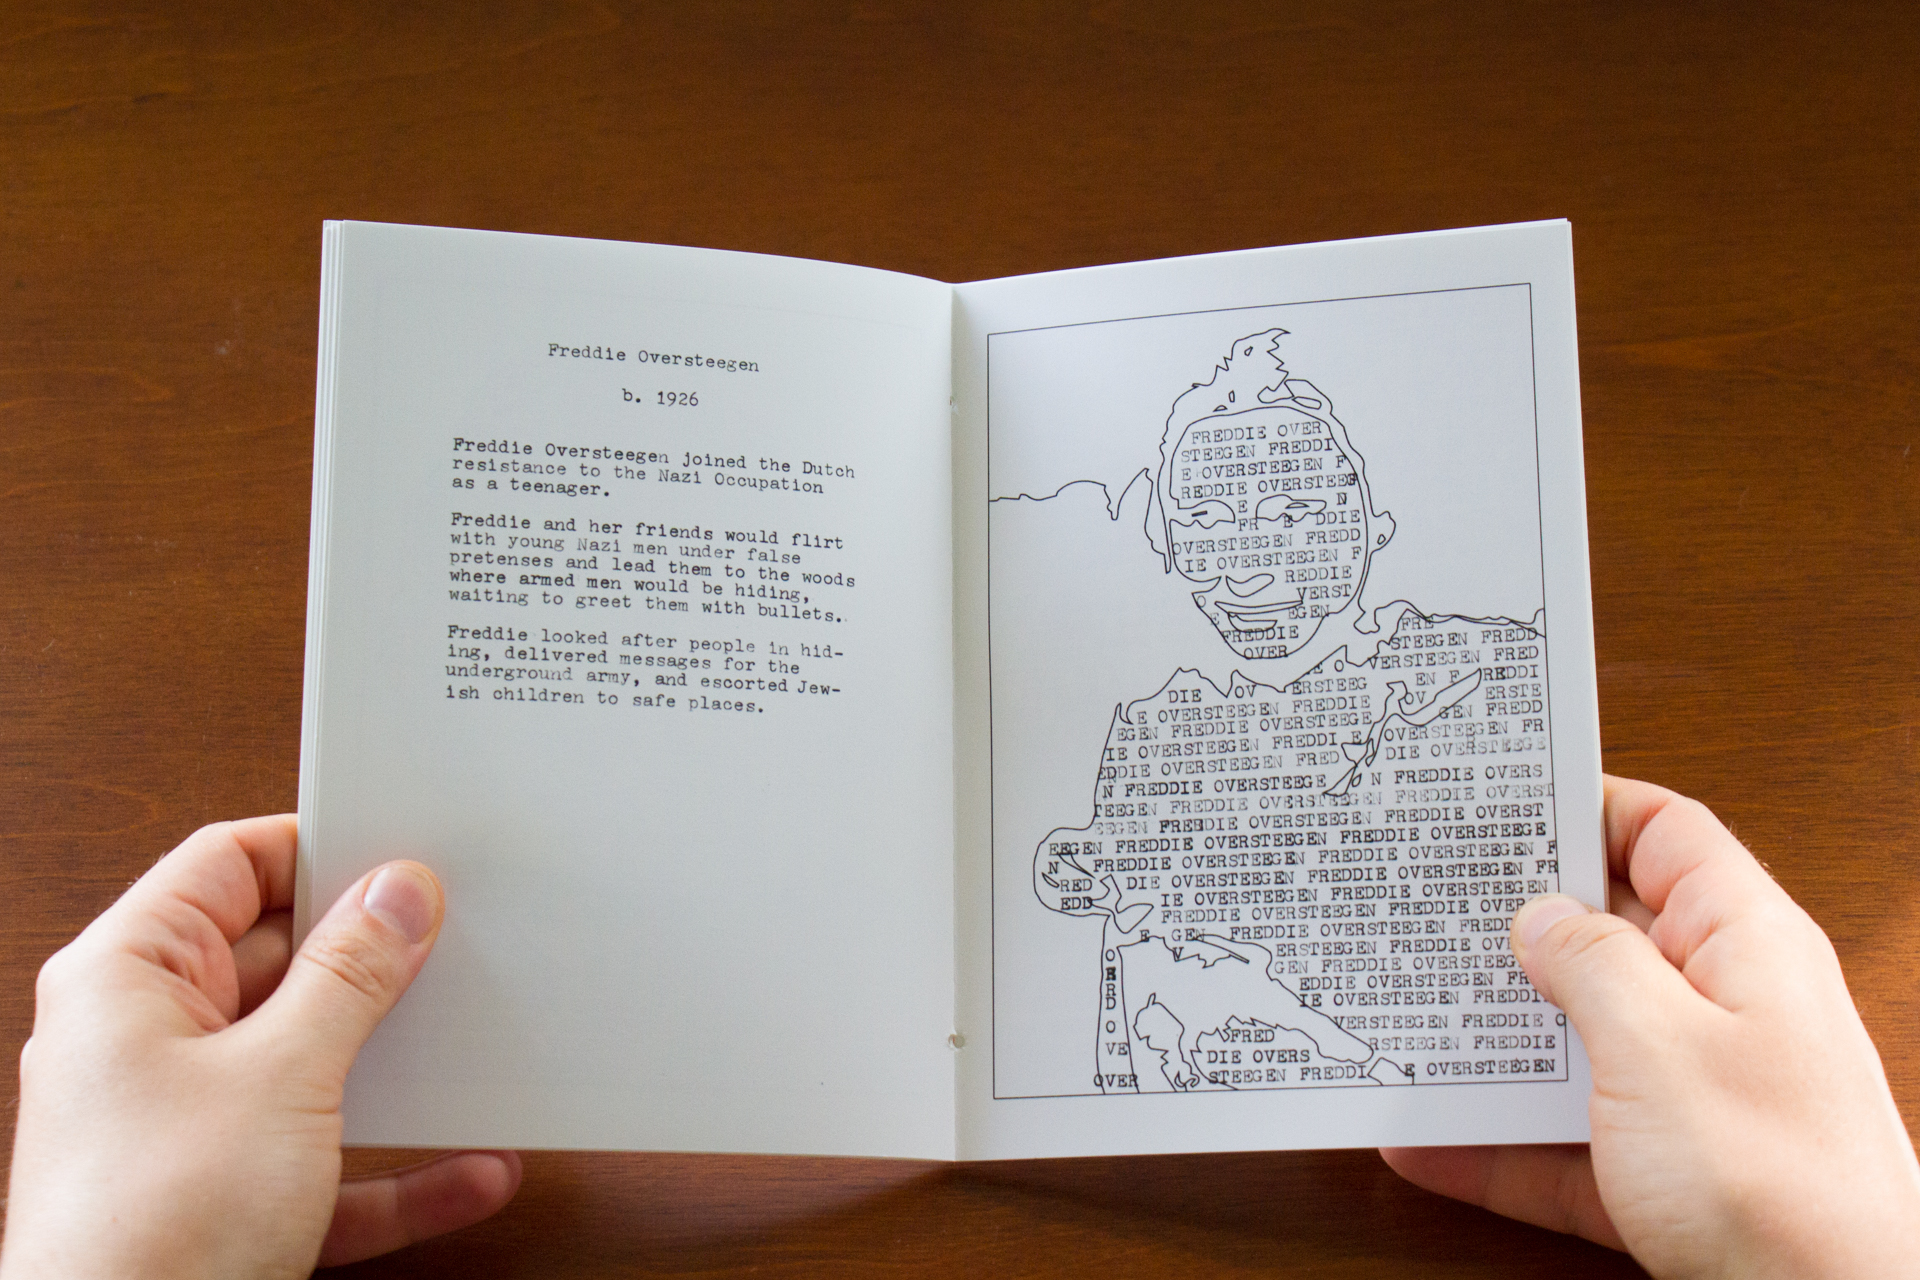 Freddie Oversteegen
b. 1926
Freddie Oversteegen joined the Dutch
resistance to the Nazi Occupation
as a teenager.
Freddie and her friends would flirt
with young Nazi men under false
pretenses and lead them to the woods
where armed men would be hiding,
waiting to greet them with bullets.
Freddie looked after people in hid-
ing, delivered messages for the
underground army, and escorted Jew-
ish children to safe places.
FREDDIE OVER
STEEGEN FREDDI
E OVERSTEEGEN F
REDDIE OVERSTEEG
E N
FR E DDIE
OVERSTEEGEN FREDD
IE OVERSTEEGEN F
REDDIE
O VERST
E EGEN
FREDDIE
OVER
FRE
STEEGEN FREDD
IE O VERSTEEGEN FRED
ERSTEEG EN F REDDI
DIE OV OV ERSTE
E OVERSTEEGEN FREDDIE GEN FREDD
EGEN FREDDIE OVERSTEEGE OVERSTEEGEN FR
IE OVERSTEEGEN FREDDI E DIE OVERSTEEGE
EDDIE OVERSTEEGEN FRED
N FREDDIE OVERSTEEGE N FREDDIE OVERS
TEEGEN FREDDIE OVERSTEEGEN FREDDIE OVERST
EEGEN FREDDIE OVERSTEEGEN FREDDIE OVERST
EEGEN FREDDIE OVERSTEEGEN FREDDIE OVERSTEEGE
N FREDDIE OVERSTEEGEN FREDDIE OVERSTEEGEN F
RED DIE OVERSTEEGEN FREDDIE OVERSTEEGEN FR
EDD IE OVERSTEEGEN FREDDIE OVERSTEEGEN
FREDDIE OVERSTEEGEN FREDDIE OVER
E GEN FREDDIE OVERSTEEGEN FREDD
V ERSTEEGEN FREDDIE OV
O GEN FREDDIE OVERSTEEG
EDDIE OVERSTEEGEN FR
R IE OVERSTEEGEN FREDDI
D
O VERSTEEGEN FREDDIE O
FRED
VE RSTEEGEN FREDDIE
DIE OVERS
OVER STEEGEN FREDDI E OVERSTEEGEN